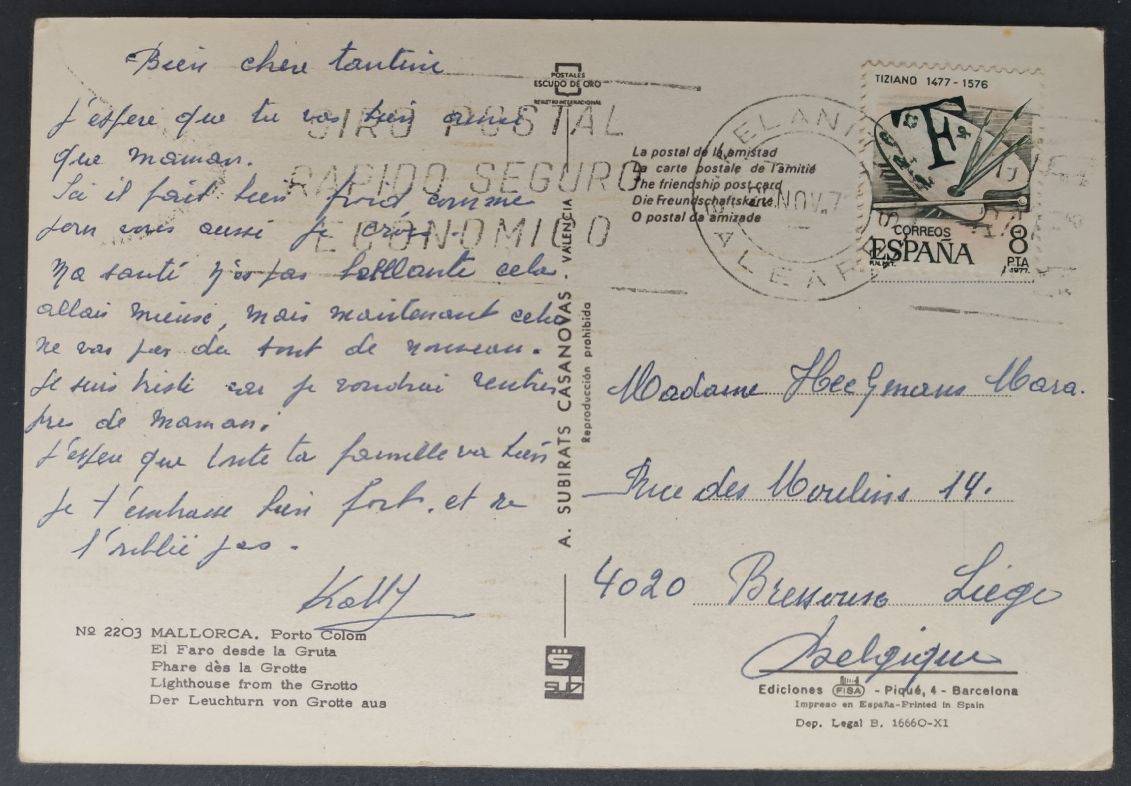 Bien chere tantine
J'espere que tu vas bien ainsi
que Maman.
Ici il fait bien froid comme
pour vous aussi je crois.
Ma santé n'es pas brillante cela
allais mieux, mais maintenant cela
ne vas pas du tout de nouveau.
Je suis triste car je voudrai rentrer
pres de Maman.
J'espere que toute ta famille va bien
Je t'embrasse bien fort. et ne
t'oublie pas.
Nº 2203 MALLORCA. Porto Colom
El Faro desde la Gruta
Phare dès la Grotte
Lighthouse from the Grotto
Der Leuchturn von Grotte aus
POSTALES
ESCUDO DE ORO
REGISTRO INTERNACIONAL
GIRO POSTAL
RAPIDO SEGURO
ECONOMICO
A. SUBIRATS CASANOVAS - VALENCIA
Reproducción prohibida
La postal de la amistad
La carte postale de l'amitié
The friendship post card
Die Freundschaftskarte
O postal da amizade
NOV.
TIZIANO 1477 - 1576
CORREOS
ESPAÑA
8
PTA
1977
Madame Heegmans Mara.
Rue des Moulins 14.
4020 Bressoux Liège
Belgique
Ediciones FISA - Piqué, 4 - Barcelona
Impreso en España-Printed in Spain
Dep. Legal B. 16660-XI